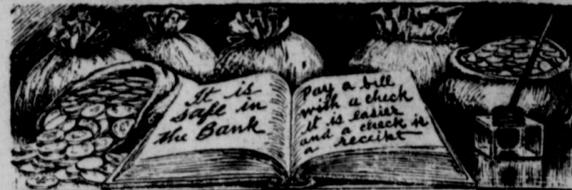 It is
safe in
the Bank
Pay a bill
with a check
it is easier
and a check is
a receipt